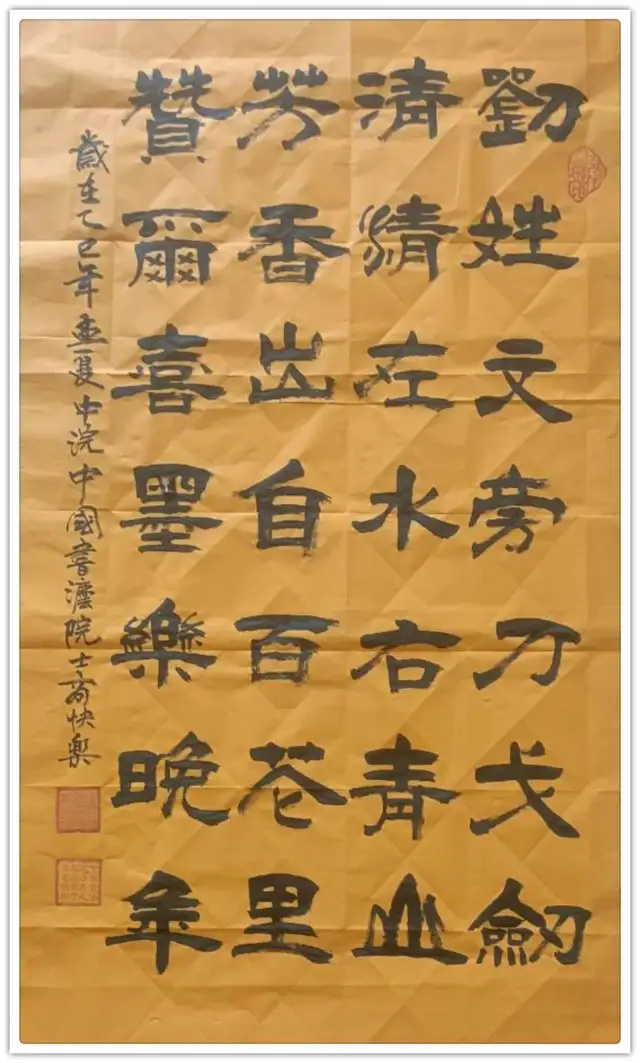 劉姓文旁刀戈劒
清清左水右青山
芳香出自百花里
贊爾喜墨樂晚年
歲在乙巳年孟夏中浣中國書灋院士商快樂